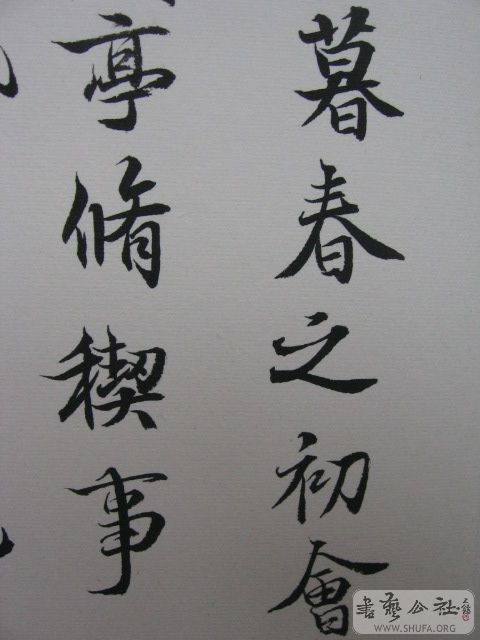 暮春之初會
亭脩稧事
書藝公社
WWW.SHUFA.ORG